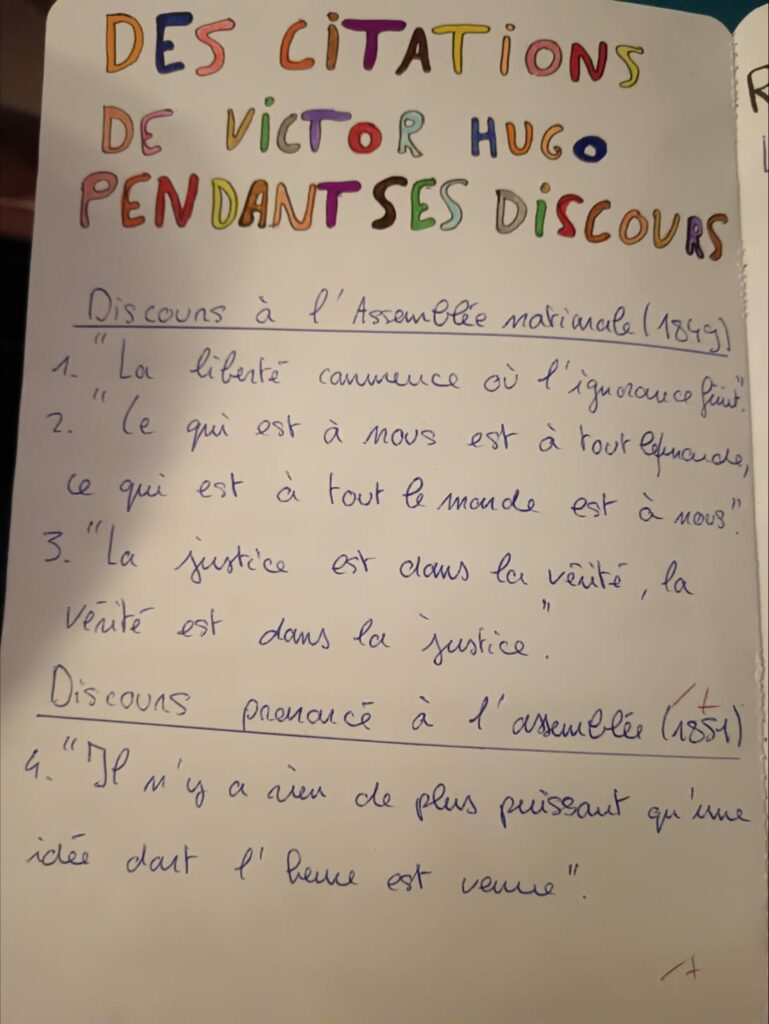 DES CITATIONS
DE VICTOR HUGO
PENDANT SES DISCOURS
Discours à l'Assemblée nationale (1849)
1. "La liberté commence où l'ignorance finit."
2. "Ce qui est à nous est à tout le monde,
ce qui est à tout le monde est à nous".
3. "La justice est dans la vérité, la
vérité est dans la justice."
Discours prononcé à l'assemblée (1851)
4. "Il n'y a rien de plus puissant qu'une
idée dont l'heure est venue".